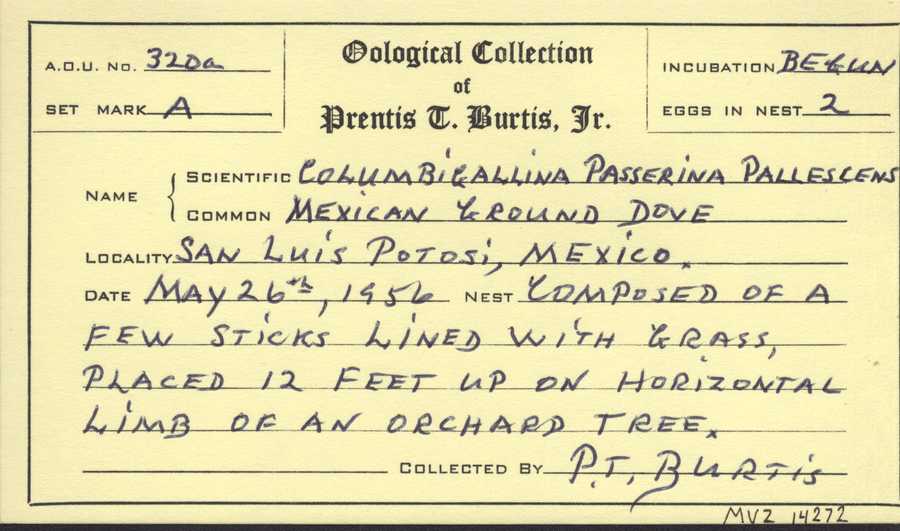 A.O.U. No. 320a
Oological Collection
INCUBATION BEGUN
SET MARK A
of
EGGS IN NEST 2
Prentis T. Burtis, Jr.
NAME
SCIENTIFIC COLUMBIGALLINA PASSERINA PALLESCENS
COMMON MEXICAN GROUND DOVE
LOCALITY SAN LUIS POTOSI, MEXICO.
DATE MAY 26th, 1956 NEST COMPOSED OF A
FEW STICKS LINED WITH GRASS,
PLACED 12 FEET UP ON HORIZONTAL
LIMB OF AN ORCHARD TREE.
COLLECTED BY P.T. BURTIS
MVZ 14272